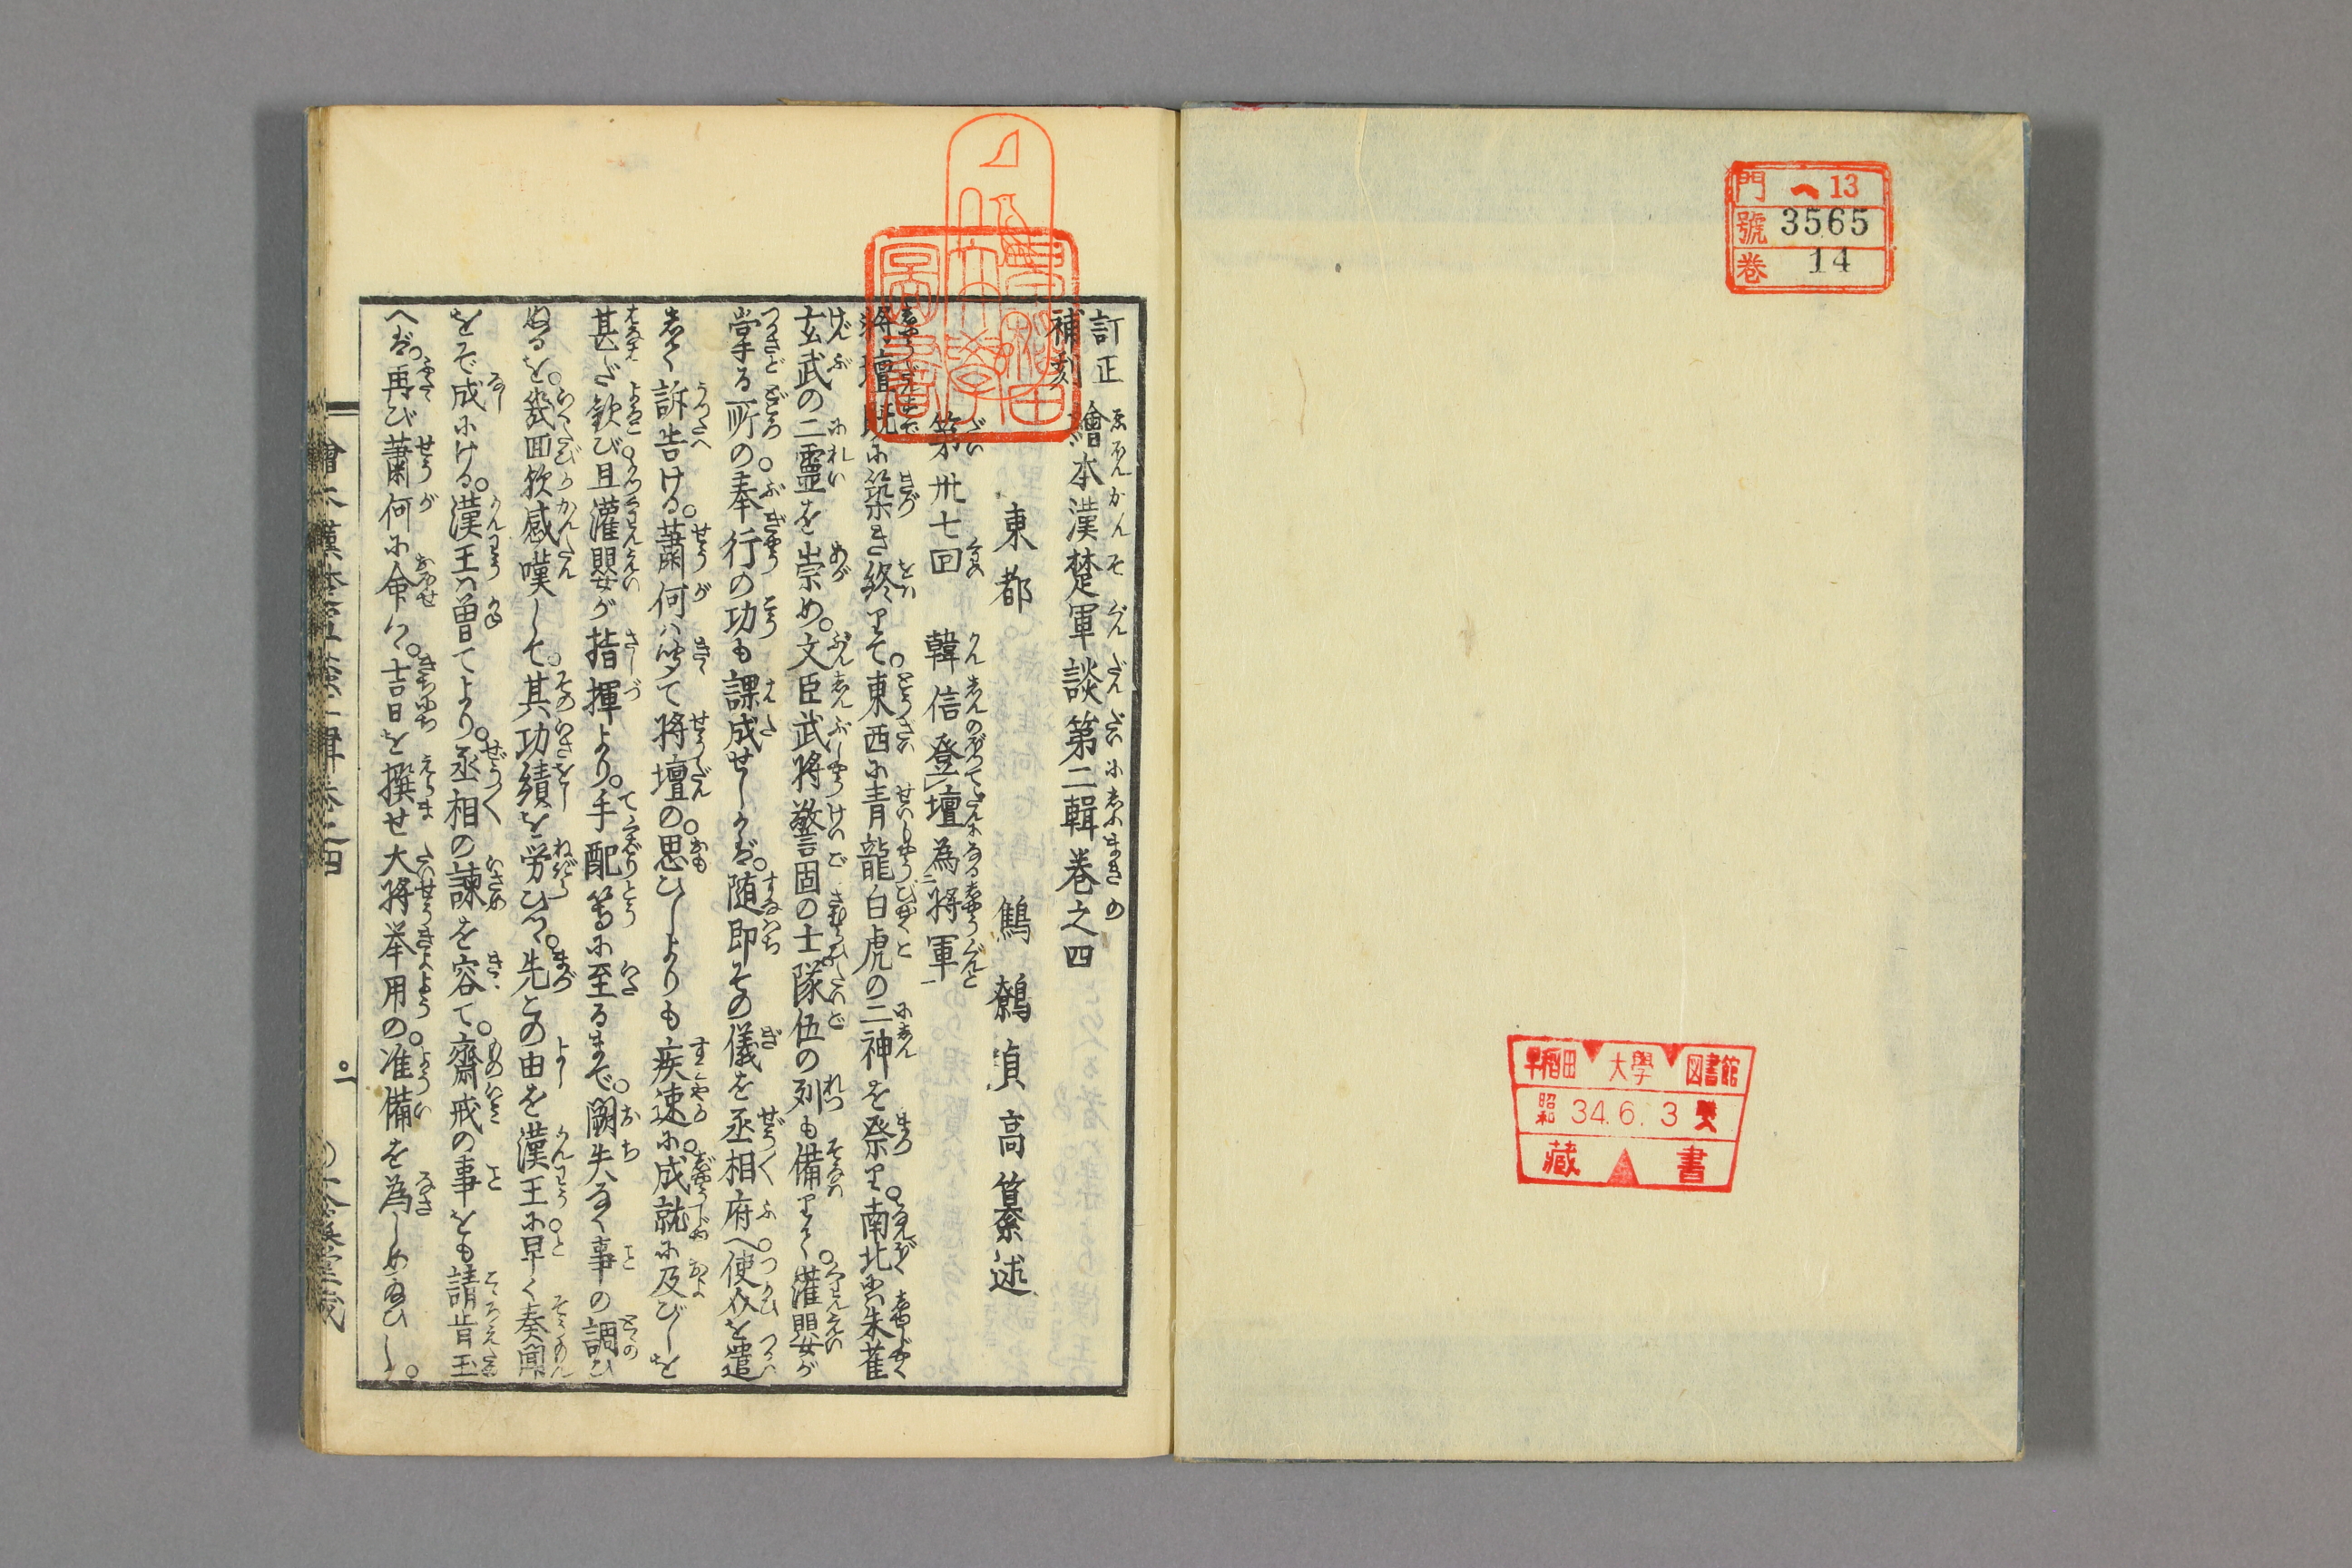 門 ヘ 13
號 3565
巻 14
早稲田大學図書館
昭和 34.6.3
藏書
訂正
補刻
繪本漢楚軍談第二輯巻之四
東都 鶴鶴貞高纂述
第卅七回 韓信登壇為将軍
将壇既に築き終りて。東西に青龍白虎の二神を祭り。南北に朱雀
玄武の二靈を崇め。文臣武将警固の士隊伍の列も備りて。灌嬰が
掌る所の奉行の功も課成せしかば。随即その儀を丞相府へ使介を遣
して訴告ける。蕭何ハ聞て将壇の思ひしよりも疾速に成就に及びしを
甚だ歓び且灌嬰が指揮より。手配等に至るまで。闕失なく事の調ひ
ぬるを。幾回欤感嘆して。其功績を労ひつ。先この由を漢王に早く奏聞
をぞ成にける。漢王ハ曽てより。丞相の諫を容て。齋戒の事をも請肯玉
へば。再び蕭何に命じて。吉日を撰せ大将挙用の。准備を為しめ給ひし。